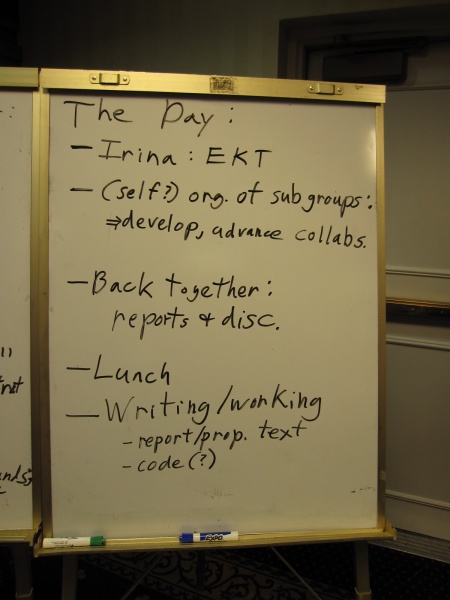 The Day:
- Irina: EKT
- (self?) org. of subgroups:
⇒develop, advance collabs.
- Back together:
reports & disc.
- Lunch
- Writing/working
- report/prop. text
- code(?)
EXPO